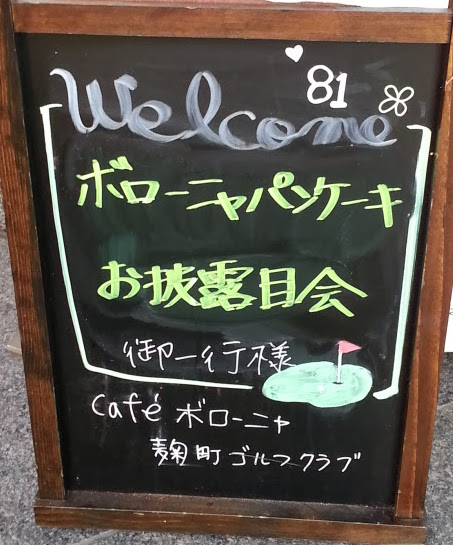 81
Welcome
ボローニャパンケーキ
お披露目会
御一行様
Café ボローニャ
麹町ゴルフクラブ